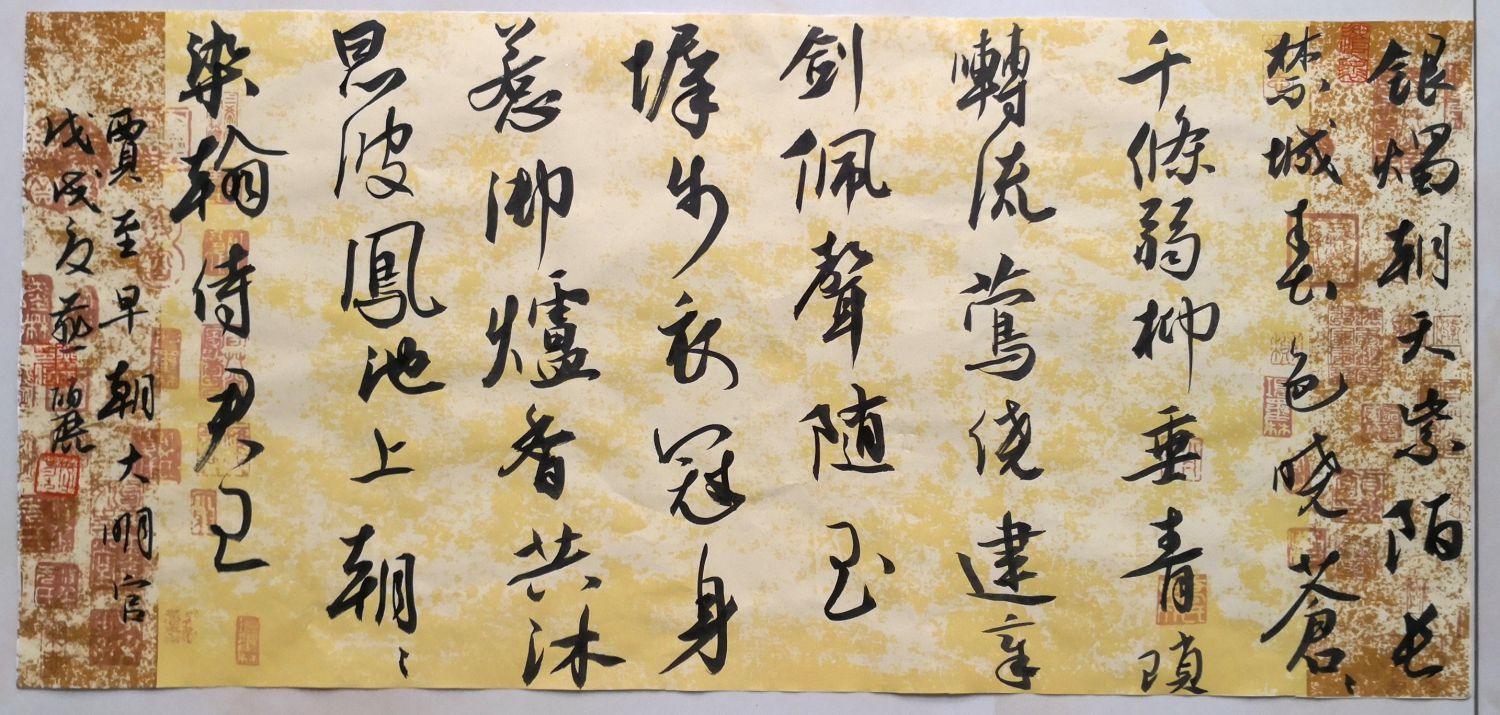 銀燭朝天紫陌长
禁城春色晓蒼〻
千條弱柳垂青瑣
囀流鶯绕建章
劍佩聲随玉
墀步衣冠身
惹御爐香共沐
恩波鳳池上朝〻
染翰侍君王
賈至早朝大明宫
戊戌夏